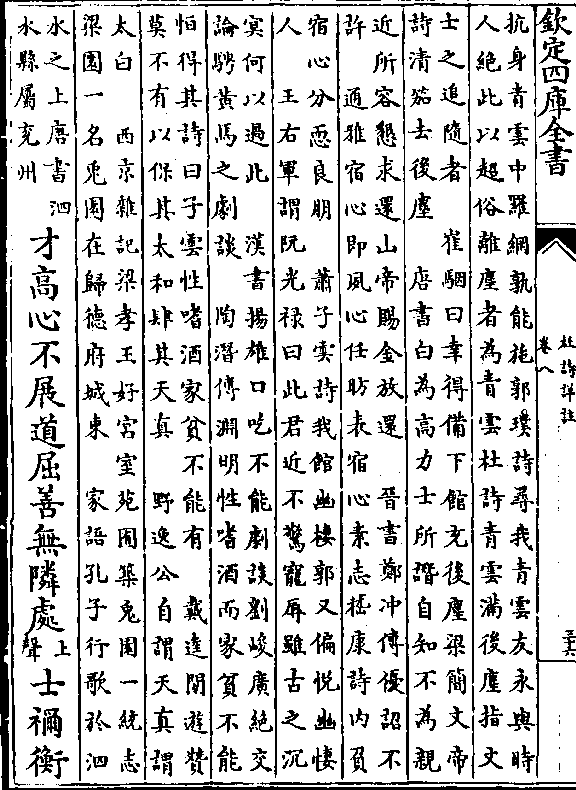 欽定四庫全書
抗身青雲中羅網孰能施郭璞詩尋我青雲友永與時
人絶此以超俗離塵者為青雲杜詩青雲滿後塵指文
士之追隨者 崔駰曰幸得備下館充後塵梁簡文帝
詩清笳去後塵 唐書白為高力士所譖自知不為親
近所容懇求還山帝賜金放還 晉書鄭冲傳優詔不
許 通雅宿心即夙心任昉表宿心素志嵇康詩内負
宿心分恧良朋 蕭子雲詩我館幽棲郭又偏悦幽悽
人 王右軍謂阮光禄曰此君近不驚寵辱雖古之沉
冥何以過此 漢書揚雄口吃不能劇談劉峻廣絶交
論騁黄馬之劇談 陶潛傳淵明性嗜酒而家貧不能
恒得其詩曰子雲性嗜酒家貧不能有 戴逵閒遊贊
莫不有以保其太和肆其天真 野逸公自謂天真謂
太白 西京雜記梁孝王好宫室苑囿築兔園一統志
梁園一名兎園在歸德府城東 家語孔子行歌於泗
水之上唐書泗
水縣屬兖州
才高心不展道屈善無隣處上聲士禰衡
杜詩詳註
卷八